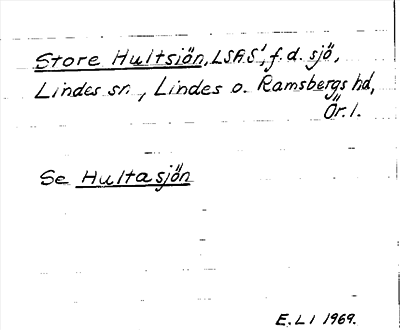 Store Hultsjön, LSAS', f.d. sjö,
Lindes sn., Lindes o. Ramsbergs hd,
Ör. l.
Se Hultasjön
E. L i 1969.